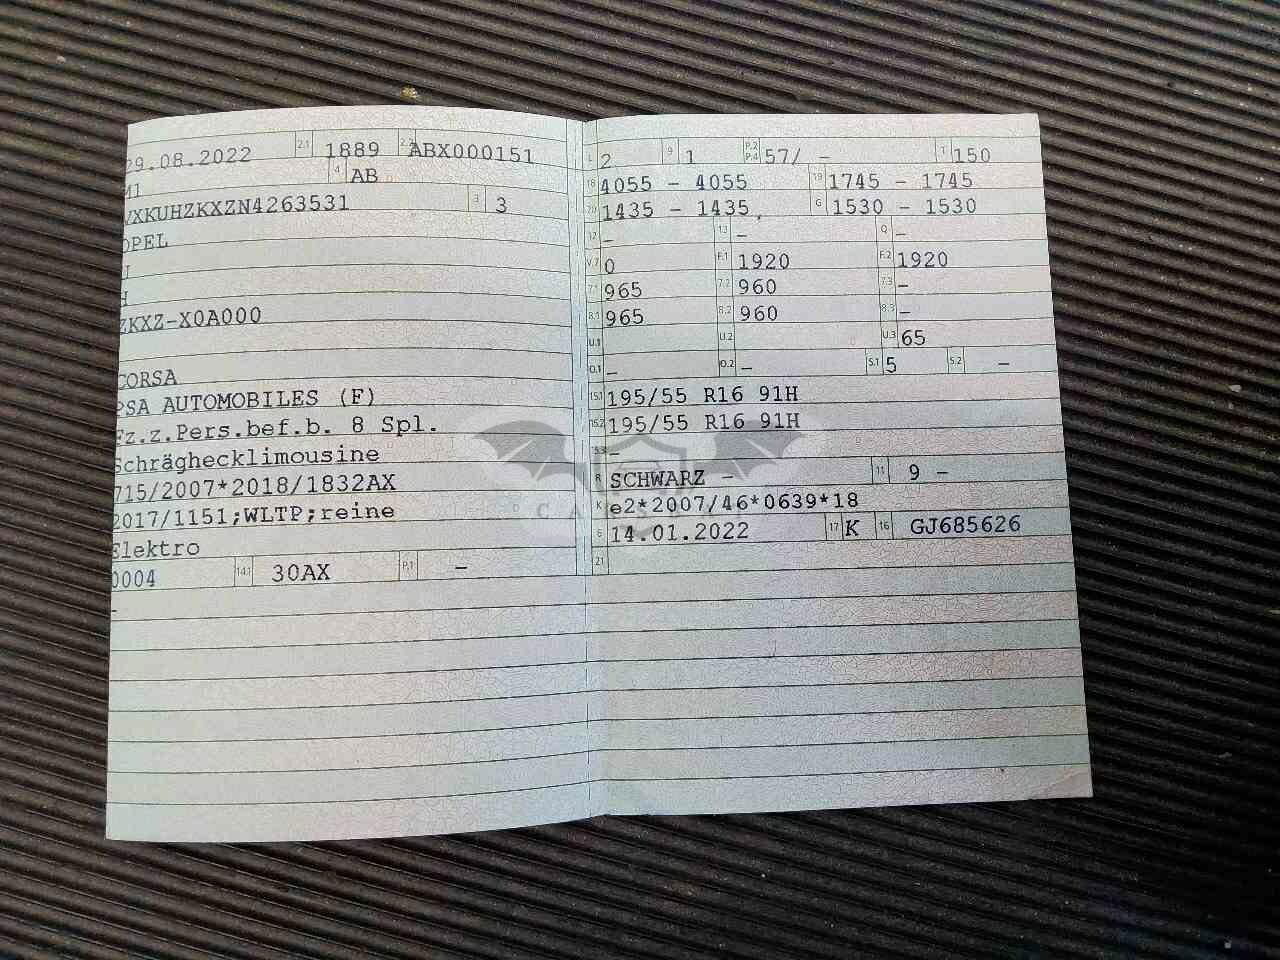 29.08.2022 2.1 1889 2.2 ABX000151
M1 4 AB
VXKUHZKXZN4263531 3 3
OPEL
U
H
ZKXZ-X0A000
CORSA
PSA AUTOMOBILES (F)
Fz.z.Pers.bef.b. 8 Spl.
Schräghecklimousine
715/2007*2018/1832AX
2017/1151;WLTP;reine
Elektro
0004 14.1 30AX P.1 –
–
L 2 9 1 P.2 P.4 57/ – T 150
18 4055 – 4055 19 1745 – 1745
20 1435 – 1435 G 1530 – 1530
12 – 13 – Q –
V.7 0 F.1 1920 F.2 1920
7.1 965 7.2 960 7.3 –
8.1 965 8.2 960 8.3 –
U.1 U.2 U.3 65
O.1 – O.2 – S.1 5 S.2 –
15.1 195/55 R16 91H
15.2 195/55 R16 91H
15.3 –
R SCHWARZ – 11 9 –
K e2*2007/46*0639*18
6 14.01.2022 17 K 16 GJ685626
21